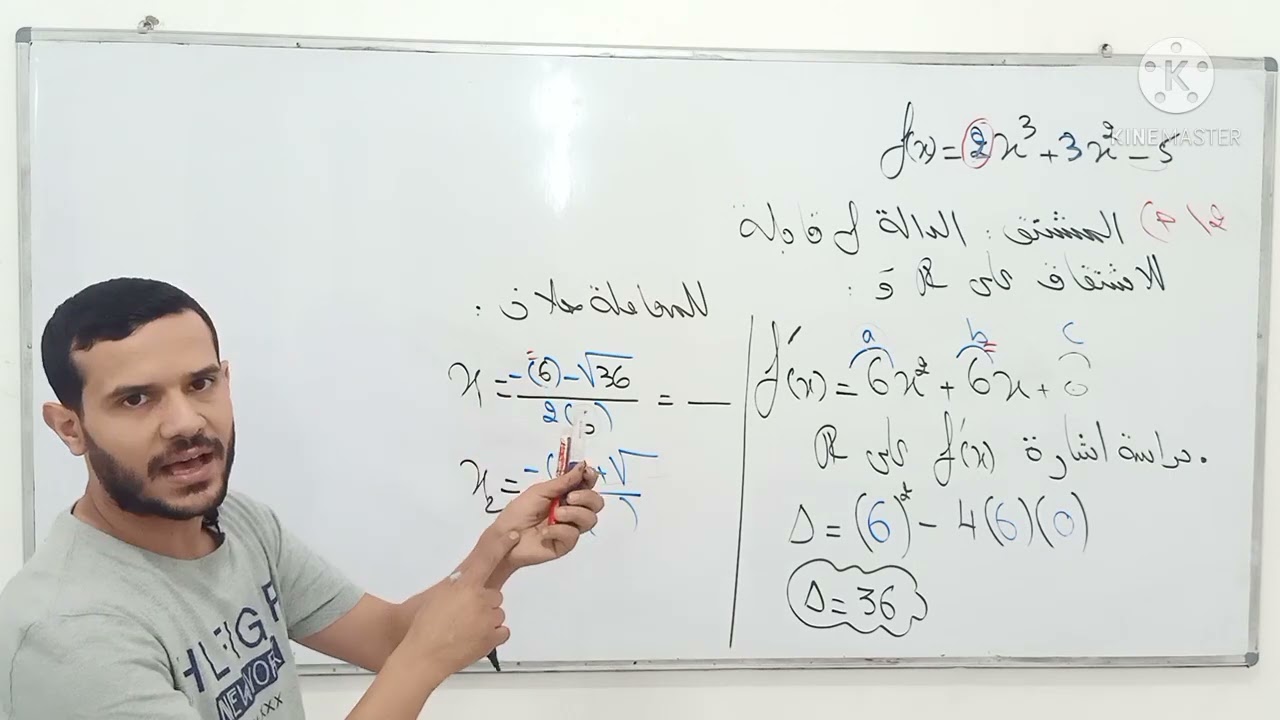 KINEMASTER
f(x) = 2x³ + 3x² - 5
2/ P) المشتق: الدالة f قابلة
للاشتقاق على ℝ و:
f'(x) = 6x² + 6x + 0
a b c
دراسة اشارة f'(x) على ℝ
Δ = (6)² - 4(6)(0)
Δ = 36
للمعادلة حلان:
x = -(6) - √36 / 2( ) = —
x₂ = -( ) + √ / )
NEW YORK